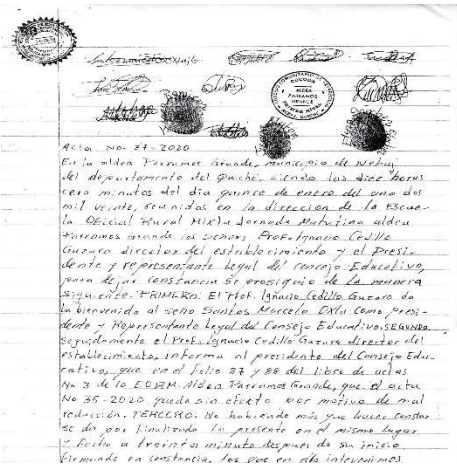 COCODE
ALDEA
PARRAMOS
GRANDE
Acta No. 37-2020
En la aldea Parramos Grande, municipio de Nebaj
del departamento del Quiché, siendo las diez horas
cero minutos del día quince de enero del año dos
mil veinte, reunidos en la dirección de la Escue-
la Oficial Rural Mixta Jornada Matutina aldea
Parramos Grande los señores Prof. Ignacio Cedillo
Guzaro director del establecimiento y el Presi-
dente y representante legal del concejo Educativo,
para dejar constancia se prosiguio de la manera
siguiente. PRIMERO: El Prof. Ignacio Cedillo Guzaro da
la bienvenida al seño Santos Marcelo Oxlaj como presi-
dente y Representante Legal del Consejo Educativo. SEGUNDO.
seguidamente el Prof. Ignacio Cedillo Guzaro director del
establecimiento, informa al presidente del Consejo Edu-
cativo, que en el folio 87 y 88 del libro de actas
No 3 de la EORM. Aldea Parramos Grande, que el acta
No 35-2020 queda sin efecto por motivo de mal
redacción. TERCERO. No habiendo más que hacer constar
se da por finalizado la presente en el mismo lugar
y fecha a treinta minuto después de su inicio.
firmando en constancia, los que en ella intervenimos